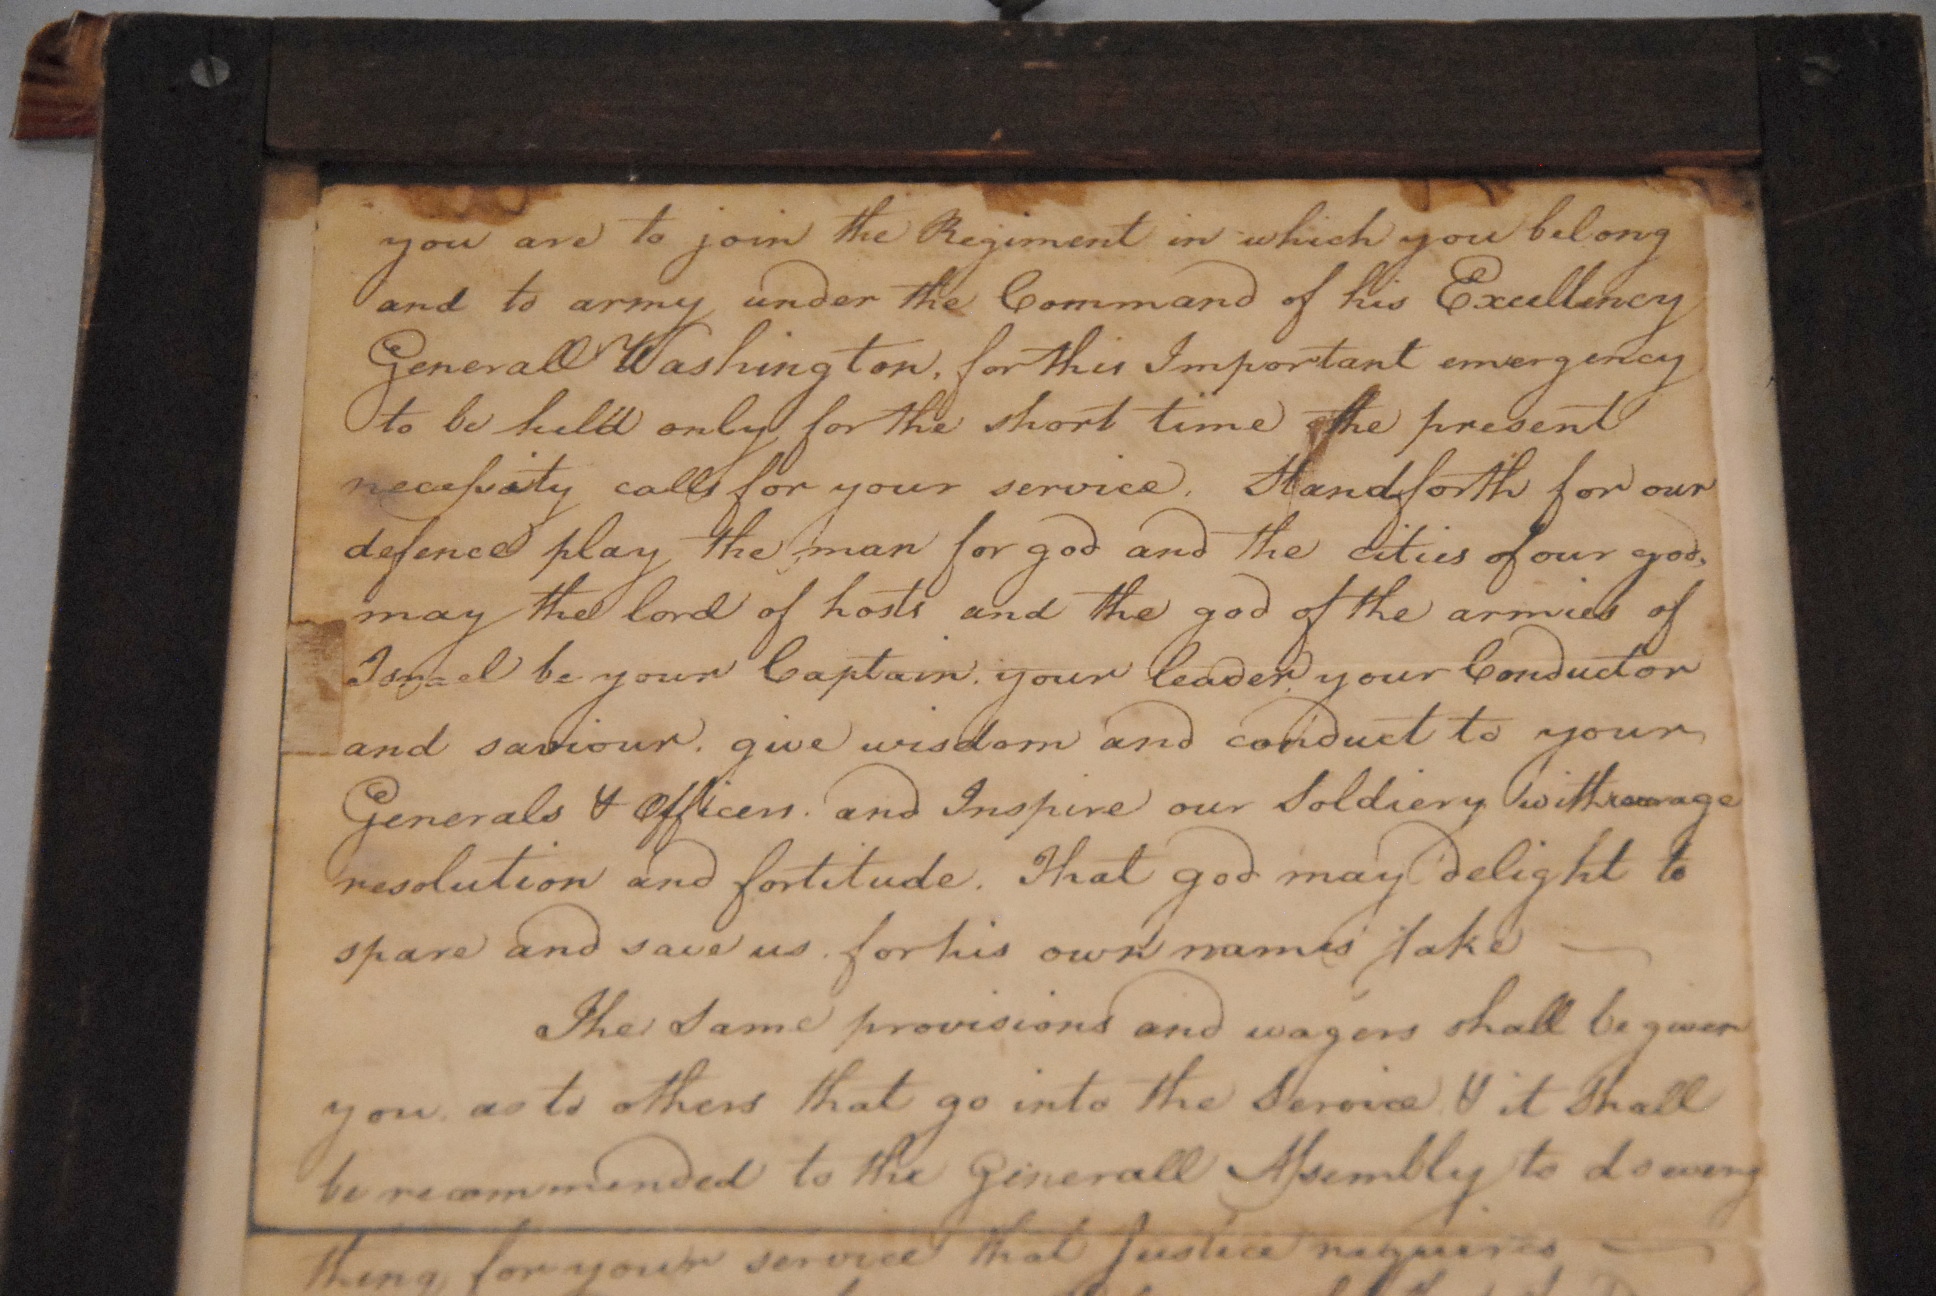 you are to join the Regiment in which you belong
and to army under the Command of his Excellency
Generall Washington, for this Important emergency
to be held only for the short time the present
necessity calls for your service. Stand forth for our
defence play the man for god and the cities of our god,
may the lord of hosts and the god of the armies of
Israel be your Captain. your leader, your Conductor
and saviour. give wisdom and conduct to your
Generals & Officers. and Inspire our Soldiery with courage
resolution and fortitude. That god may delight to
spare and save us. for his own names sake —
The Same provisions and wagers shall be given
you. as to others that go into the Service & it Shall
be recommended to the Generall Assembly to do every
thing for your service that Justice requires —